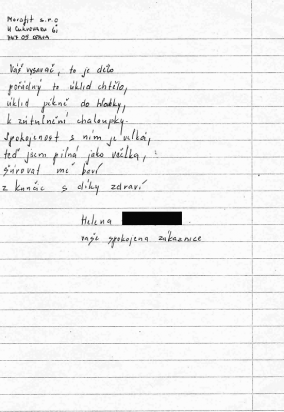 Morofit s.r.o
H
747 05 Opava
Váš vysavač, to je dílo
pořádný to úklid chtělo,
úklid pěkně do hloubky,
k zútulnění chaloupky.
Spokojenost s ním je velká,
teď jsem pilná jako včelka,
mě baví
z s díky zdraví
Helena
vaše spokojena zákaznice